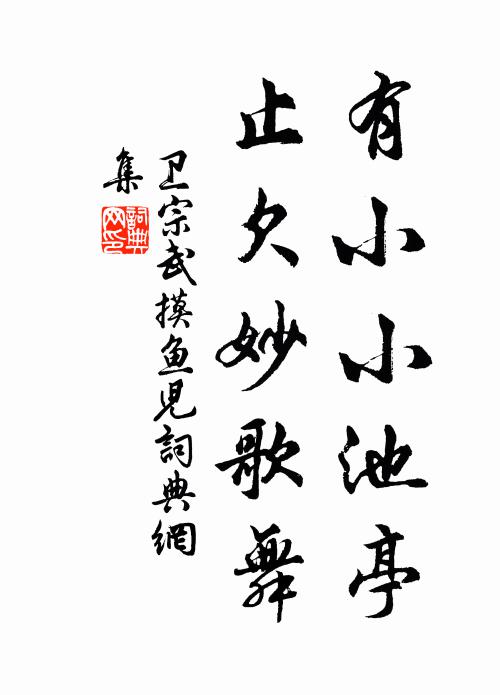 有小小池亭
止欠妙歌舞
卫宗武摸鱼儿詞典網
集
詞典网印